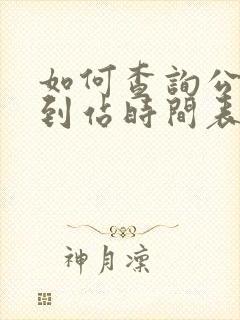 如何查詢公
到佔時間表
神月凜